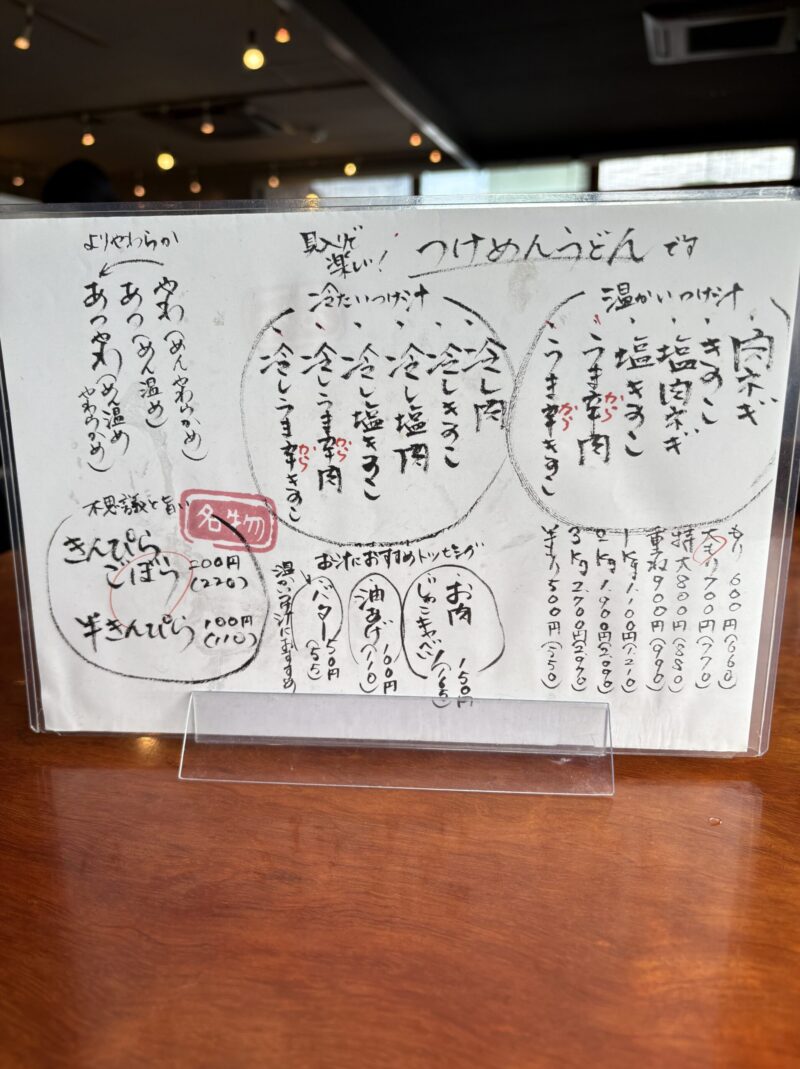 つけめんうどんです
具入りで
楽しい!
温かいつけ汁
肉ネギ
きのこ
塩肉ネギ
塩きのこ
うま辛肉
から
うま辛きのこ
から
冷たいつけ汁
冷し肉
冷しきのこ
冷し塩肉
冷し塩きのこ
冷しうま辛肉
から
冷しうま辛きのこ
から
よりやわらか
やわ(めんやわらかめ)
あつ(めん温め)
あつやわ(めん温め
やわらかめ)
もり 600円(660)
大もり 700円(770)
特大 800円(880)
重ね 900円(990)
1kg 1.100円(1.210)
2kg 1.900円(2.090)
3kg 2.700円(2.970)
半もり 500円(550)
お汁におすすめトッピング
お肉
じゃこキャベツ
150円
(165)
油あげ 100円
(110)
バター 50円
(55)
温かい汁におすすめ
不思議と旨い
名物
きんぴら
ごぼう 200円
(220)
半きんぴら 100円
(110)